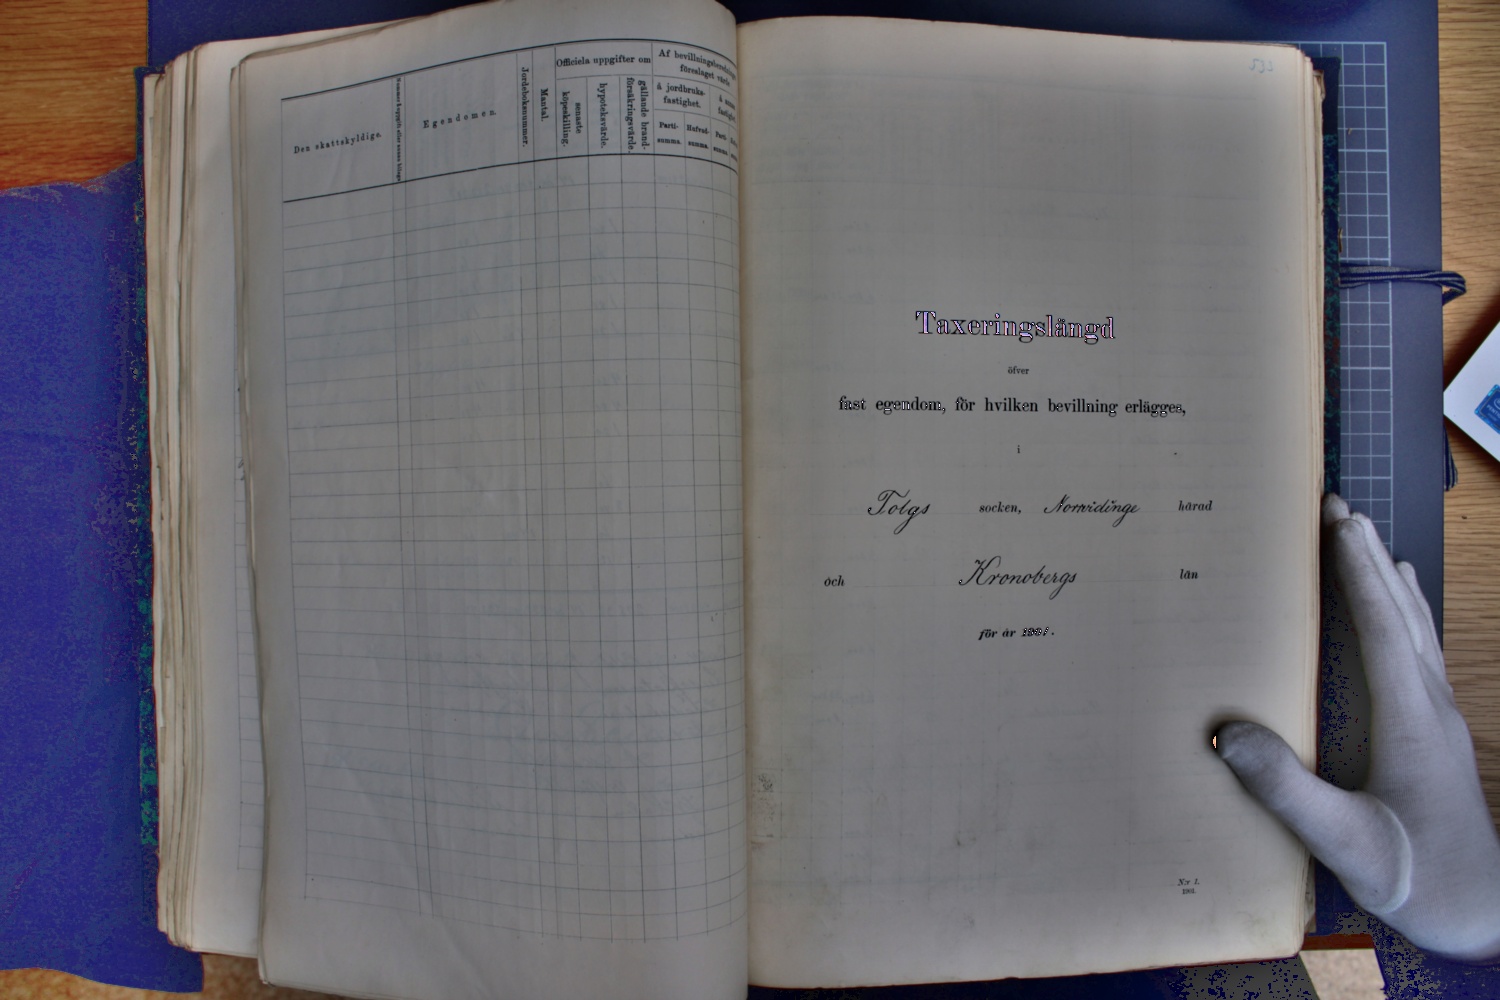 Den skattskyldige.
Nummer å uppgift eller annan bilaga
Egendomen.
Jordeboksnummer.
Mantal.
Officiela uppgifter om
senaste köpeskilling.
hypoteksvärde.
gällande brandförsäkringsvärde.
Af bevillningsberedningen
föreslaget värde
å jordbruks-
fastighet.
Parti-
summa.
Hufvud-
summa.
Parti-
summa.
Taxeringslängd
öfver
fast egendom, för hvilken bevillning erlägges,
i
Tolgs socken, Norrvidinge härad
och Kronobergs län
för år 1901.
N:r 1.
1901.